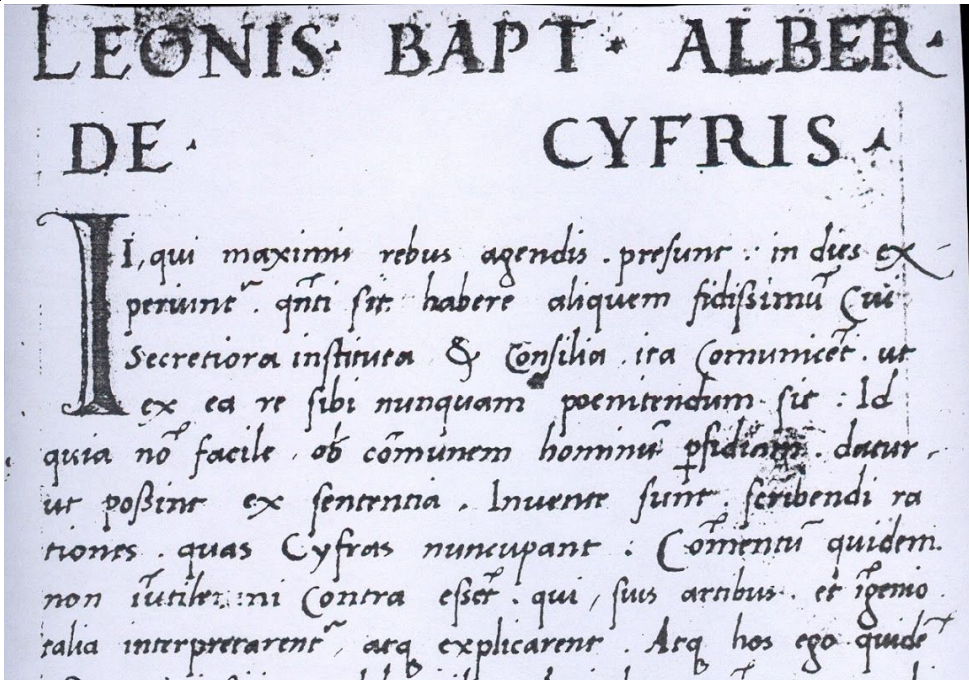 LEONIS· BAPT· ALBER·
DE· CYFRIS·
II, qui maximis rebus agendis . presunt : in dies ex-
periunt᷑. qñti sit habere aliquem fidissimū Cui
Secretiora instituta & Consilia ita Comunicet̃. ut
ex ea re sibi nunquam poenitendum sit : Id
quia nõ facile ob cõmunem hominũ ꝑfidiam. datur,
ut possint ex sententia. Inuente sunt. scribendi ra
tiones . quas Cyfras nuncupant : Cõmentũ quidem.
non iũtile: ni Contra esset̃. qui, suis artibus. et ĩgenio
talia interpretarent᷑, atq explicarent. Atq hos ego quidẽ